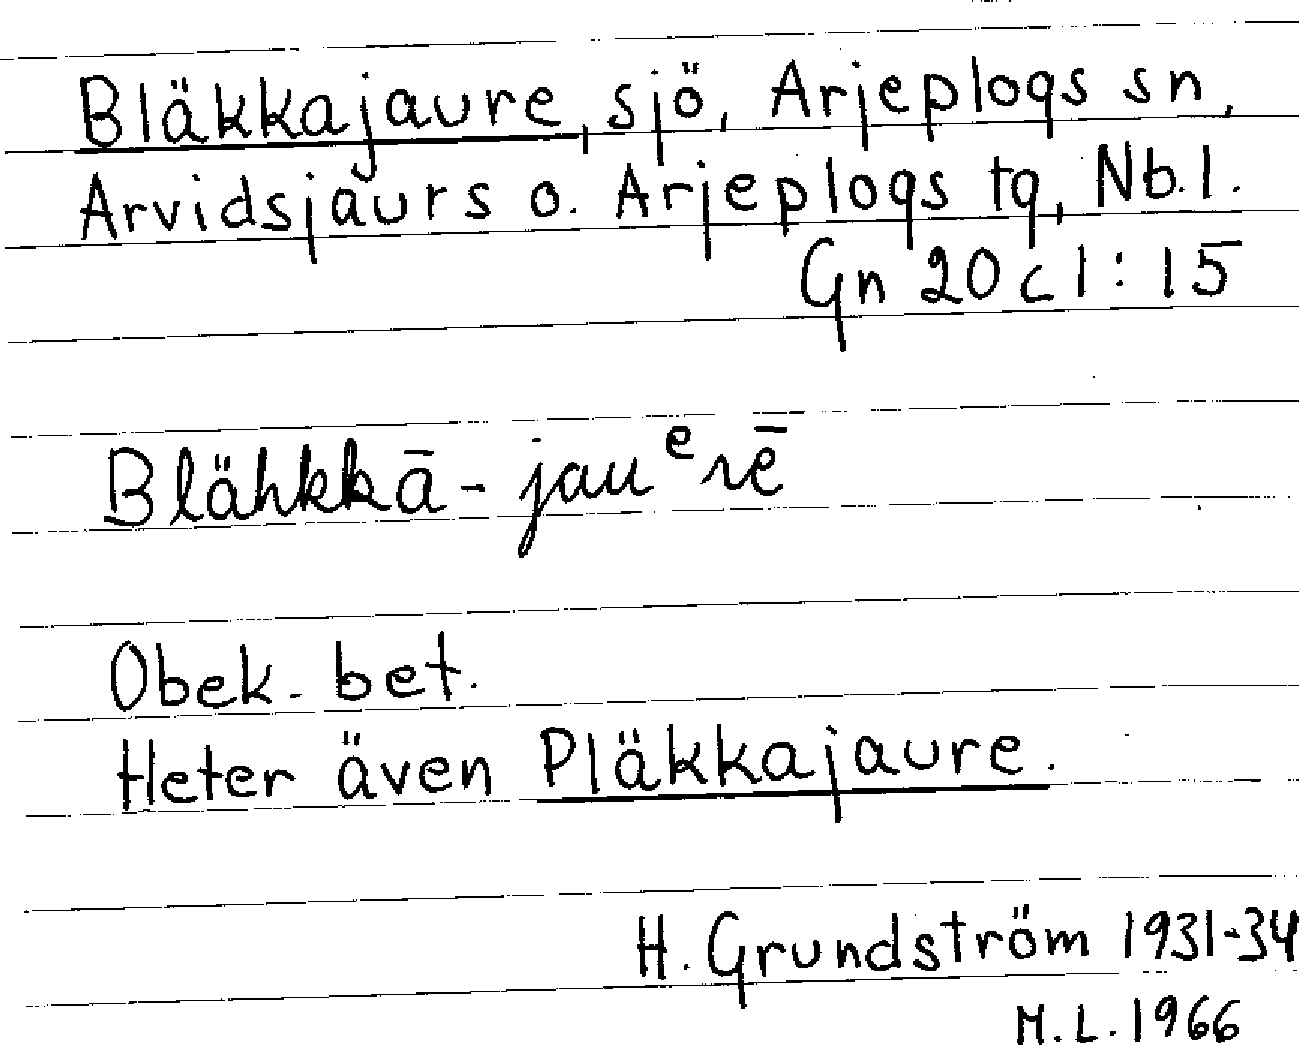 Bläkkajaure, sjö, Arjeplogs sn,
Arvidsjaurs o. Arjeplogs tg, Nb.l.
Gn 20 c 1:15
Blähkkā-jauᵉrē
Obek. bet.
Heter även Pläkkajaure.
H. Grundström 1931-34
M.L. 1966